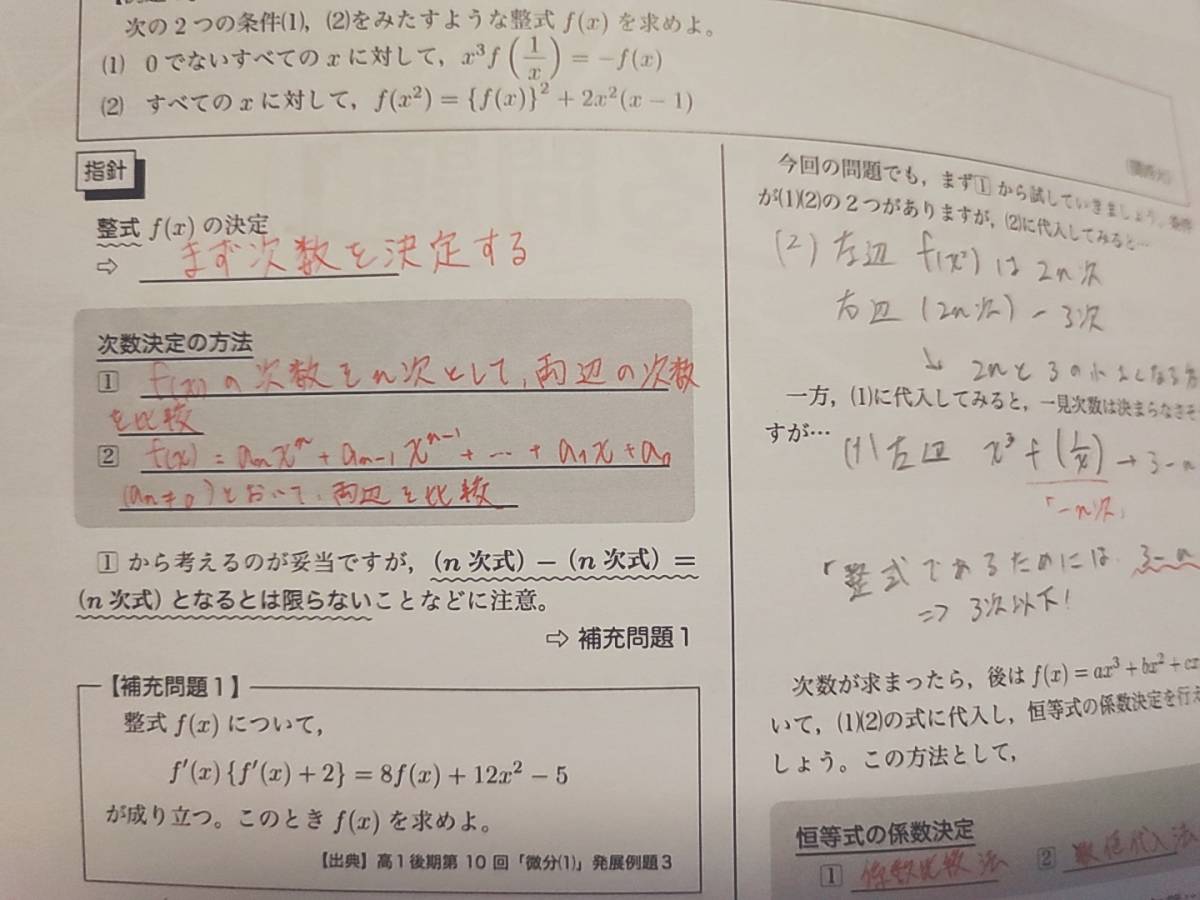 次の2つの条件(1), (2)をみたすような整式 f(x) を求めよ。
(1) 0でないすべての x に対して, x³f(1/x) = −f(x)
(2) すべての x に対して, f(x²) = {f(x)}² + 2x²(x − 1)
指針
整式 f(x) の決定
⇨ まず次数を決定する
次数決定の方法
1 f(x)の次数をn次として、両辺の次数
を比較
2 f(x) = aₙxⁿ + aₙ₋₁xⁿ⁻¹ + … + a₁x + a₀
(aₙ≠0)とおいて、両辺を比較
1 から考えるのが妥当ですが, (n 次式) − (n 次式) =
(n 次式) となるとは限らないことなどに注意。
⇨ 補充問題1
【補充問題1】
整式 f(x) について,
f′(x){f′(x) + 2} = 8f(x) + 12x² − 5
が成り立つ。このとき f(x) を求めよ。
【出典】高1後期第10回「微分(1)」発展例題3
今回の問題でも, まず1から試していきましょう。条件
が(1)(2)の2つがありますが, (2)に代入してみると…
(2) 左辺 f(x²) は 2n次
右辺 (2n次) − 3次
↳ 2nと3の
一方, (1)に代入してみると, 一見次数は決まらなさそ
すが…
(1) 左辺 x³f(1/x) → 3−n
「−n次」
「整式であるためには 3−n
⇒ 3次以下!
次数が求まったら, 後は f(x) = ax³ + bx² + cx
いて, (1)(2)の式に代入し, 恒等式の係数決定を行え
しょう。この方法として,
恒等式の係数決定
1 係数比較法 2 数値代入法